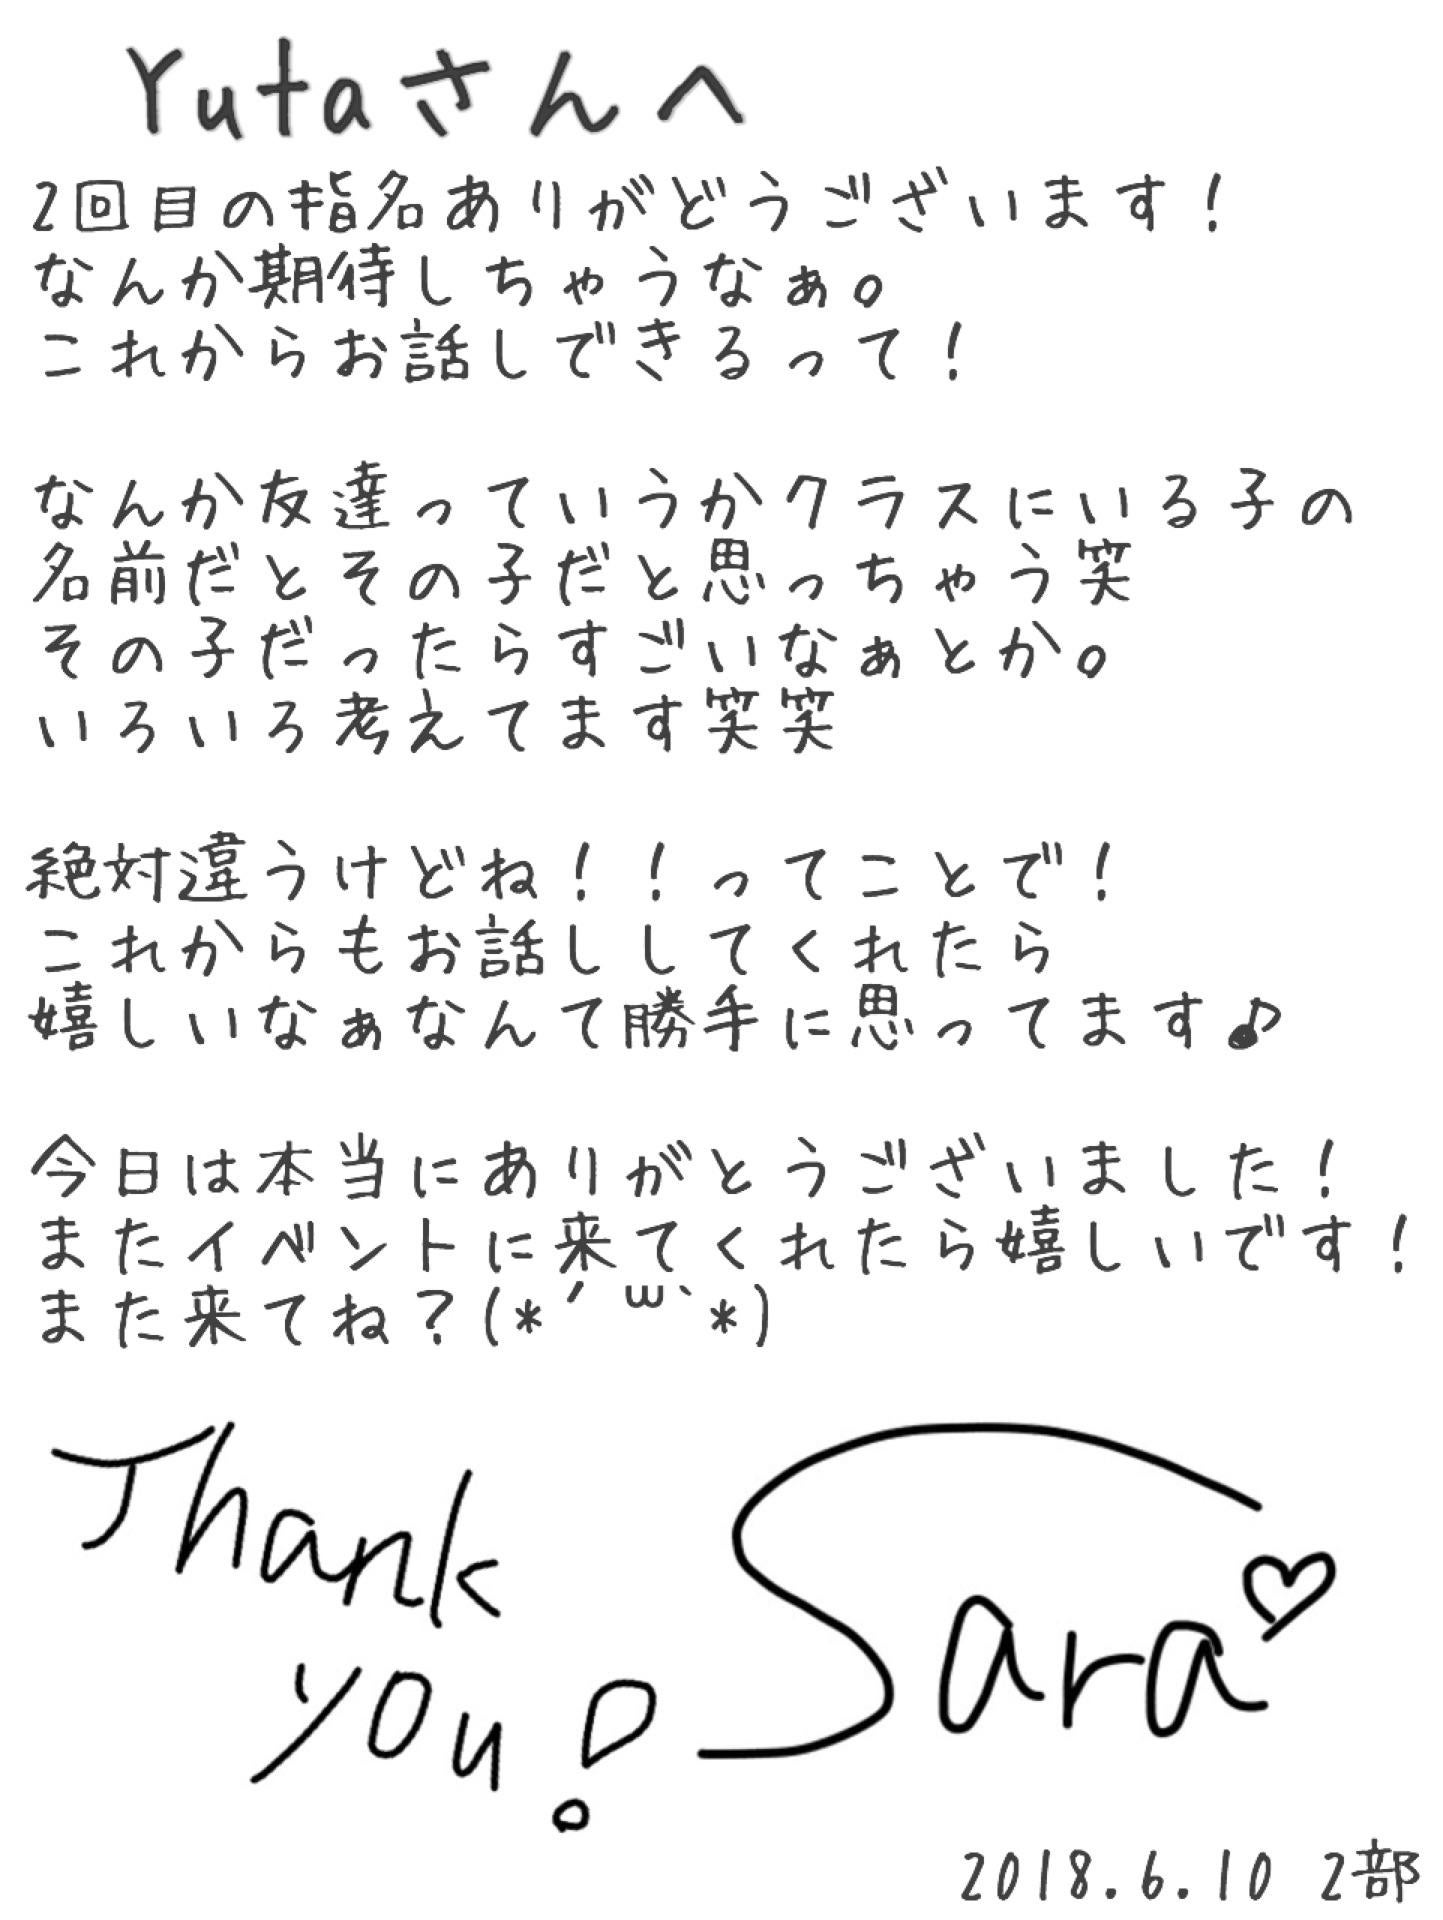 Yutaさんへ
2回目の指名ありがどうございます！
なんか期待しちゃうなぁ。
これからお話しできるって！
なんか友達っていうかクラスにいる子の
名前だとその子だと思っちゃう笑
その子だったらすごいなぁとか。
いろいろ考えてます笑笑
絶対違うけどね！！ってことで！
これからもお話ししてくれたら
嬉しいなぁなんて勝手に思ってます♪
今日は本当にありがとうございました！
またイベントに来てくれたら嬉しいです！
また来てね？(*´꒳`*)
Thank
you!
Sara♡
2018.6.10 2部